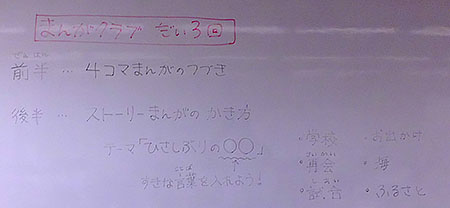 まんがクラブ だい3回
ぜんはん
前半 … 4コマまんがのつづき
後半 … ストーリーまんがのかき方
テーマ「ひさしぶりの〇〇」
ことば
好きな言葉を入れよう!
・学校 ・お出かけ
さいかい
・再会 ・海
しあい
・試合 ・ふるさと